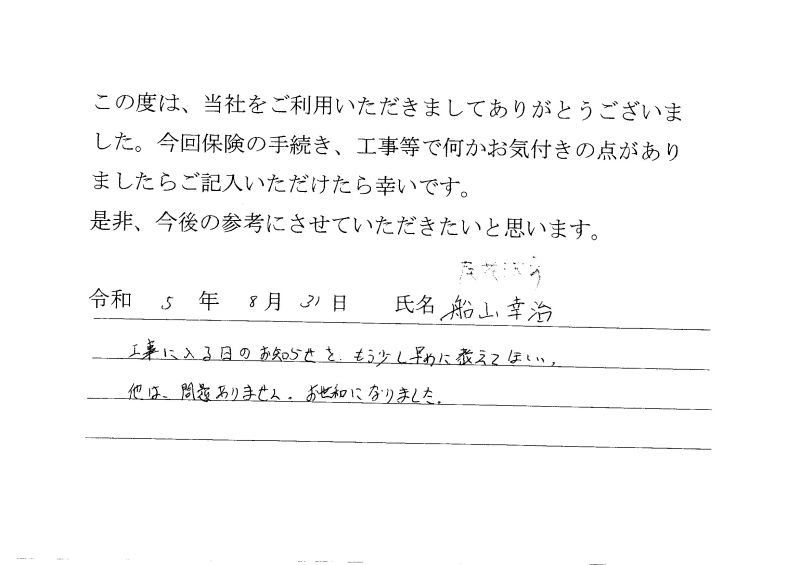 この度は、当社をご利用いただきましてありがとうございま
した。今回保険の手続き、工事等で何かお気付きの点があり
ましたらご記入いただけたら幸いです。
是非、今後の参考にさせていただきたいと思います。
令和 5 年 8月 31日 氏名 船山幸治
工事に入る日のお知らせを、もう少し早めに教えてほしい。
他は、問題ありません。お世和になりました。